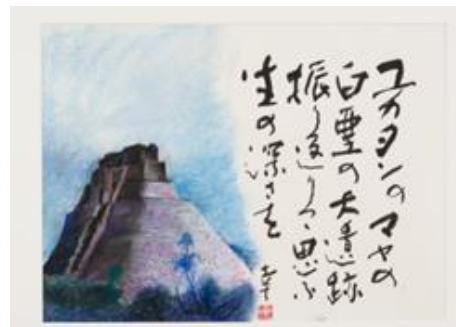 ユカタンのマヤの
白亜の大遺跡
振り返りつゝ思ふ
生の深さを